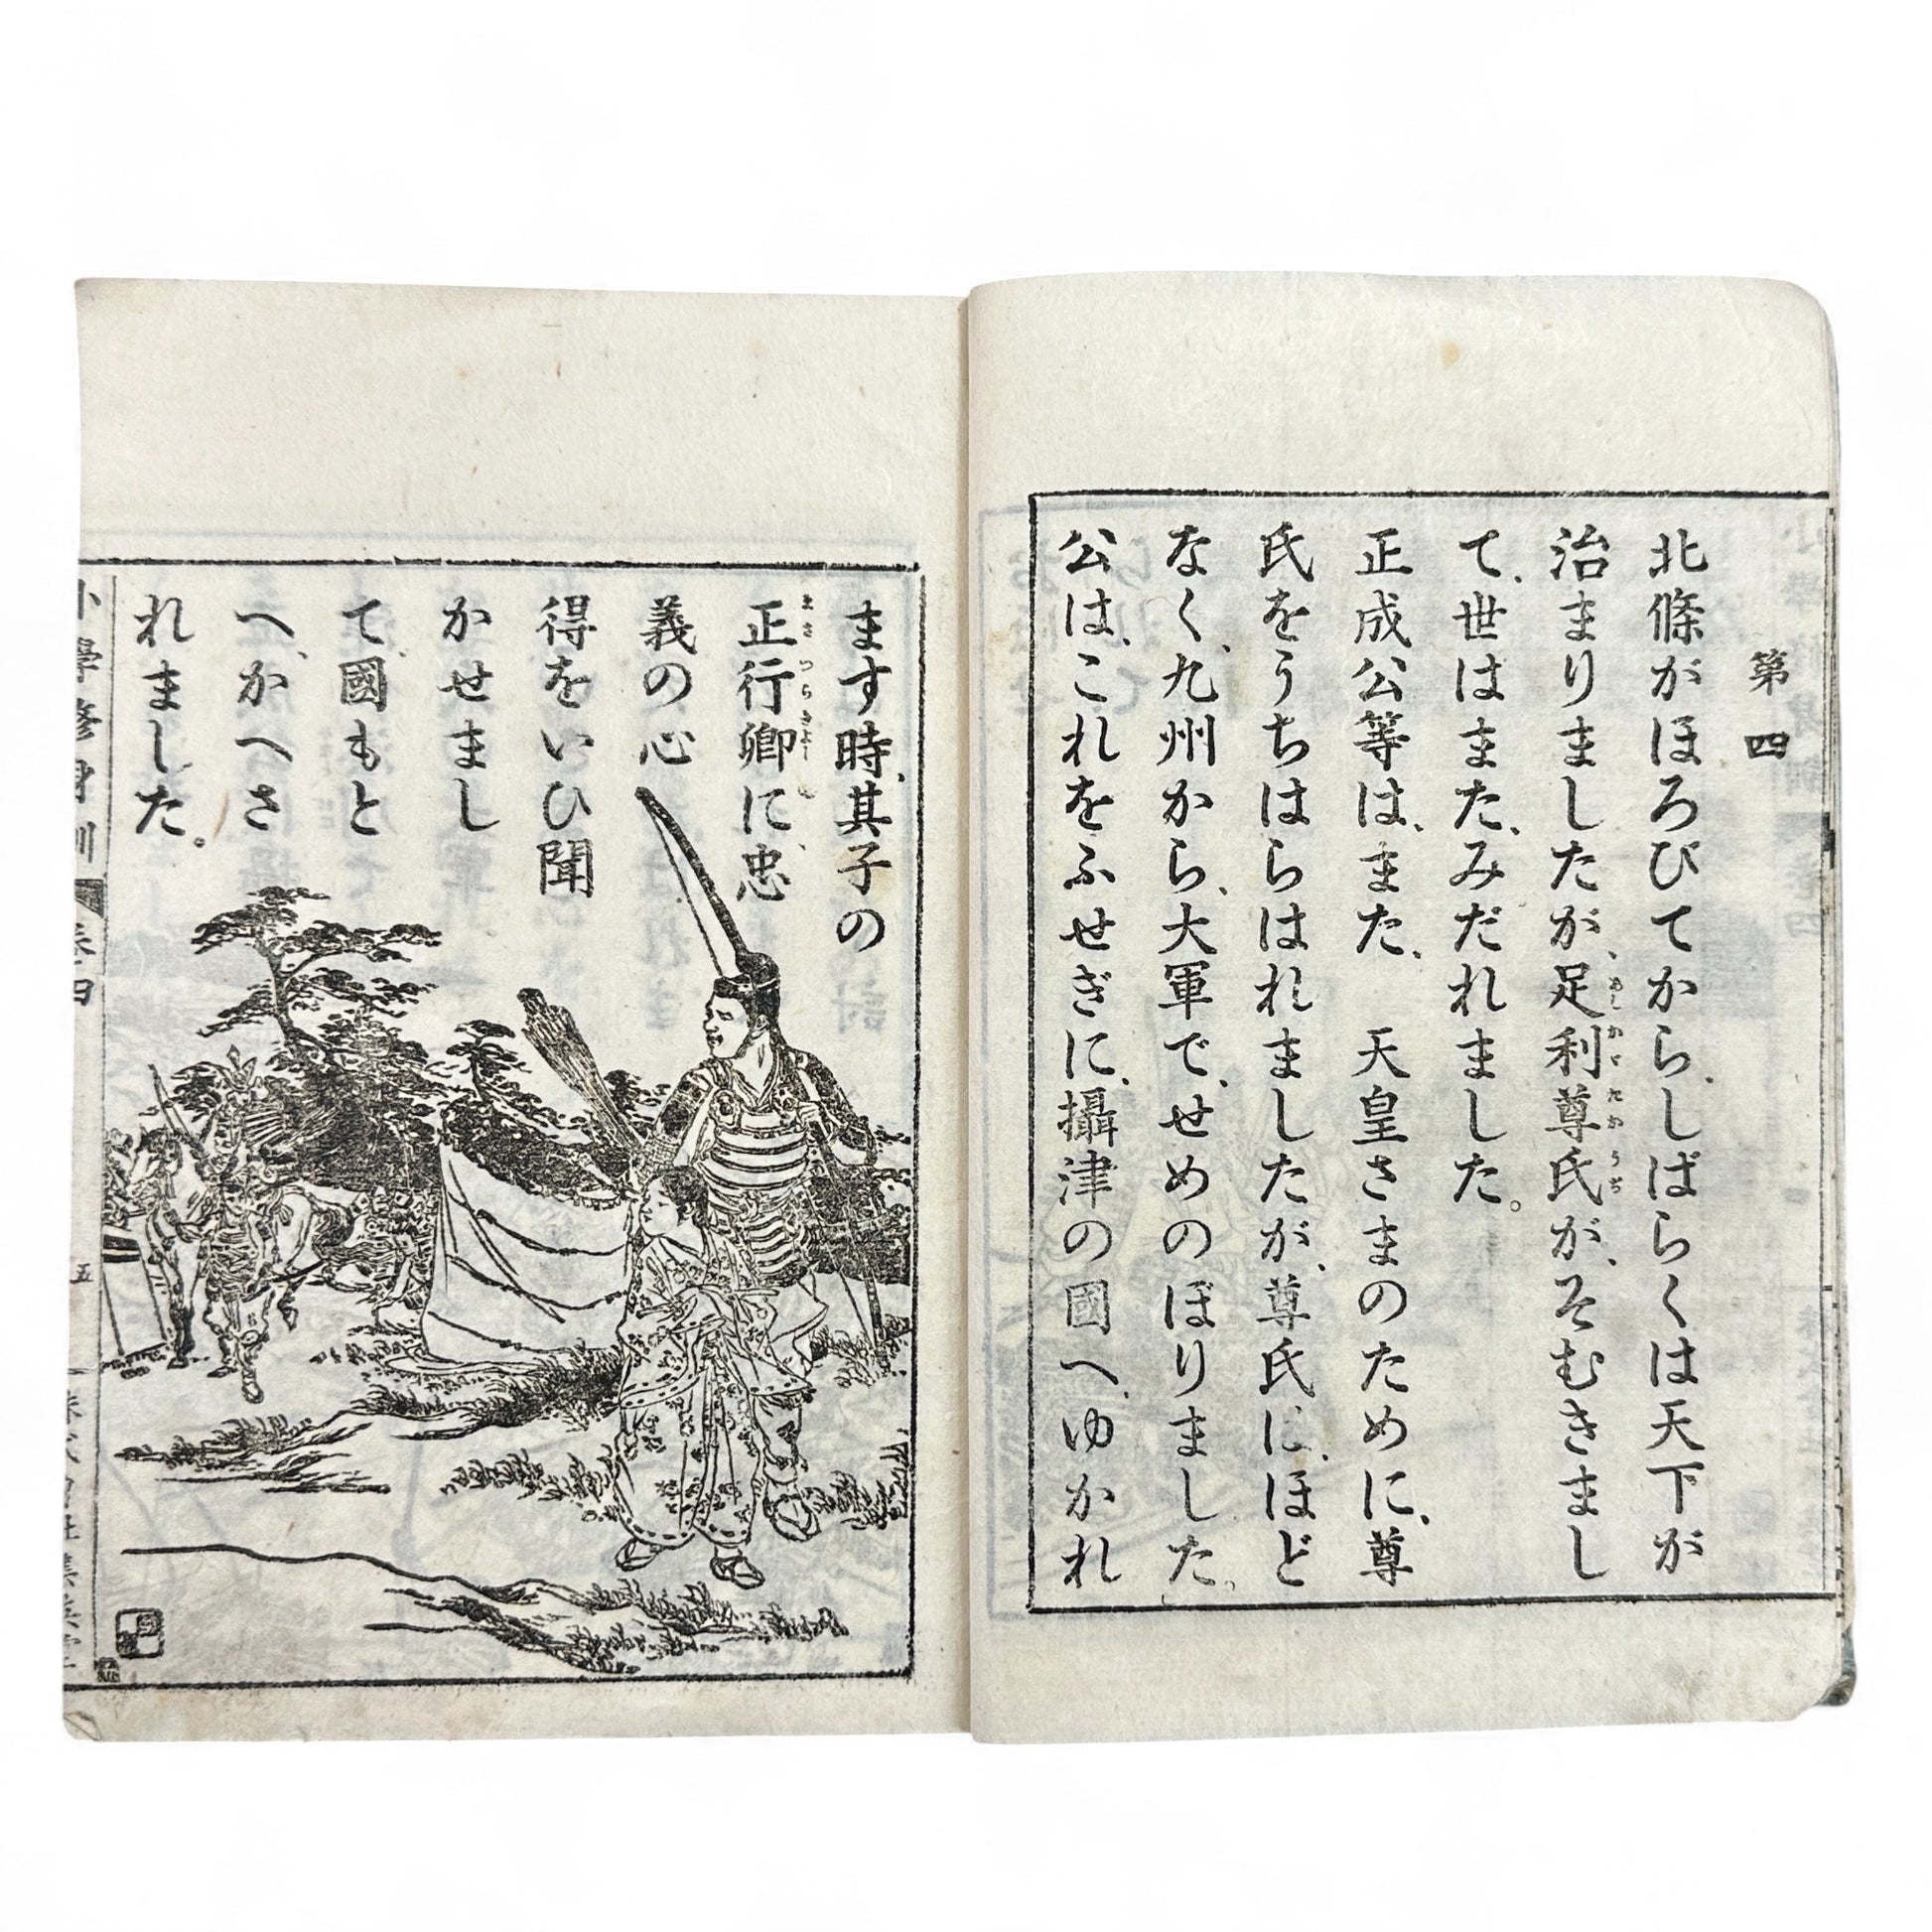 第四
北條がほろびてから、しばらくは天下が
治まりましたが、足利尊氏が、そむきまし
あしかゞたかうぢ
て、世はまた、みだれました。
正成公等は、また、天皇さまのために、尊
氏をうちはらはれましたが、尊氏は、ほど
なく、九州から、大軍で、せめのぼりました。
公は、これをふせぎに、攝津の國へ、ゆかれ
ます時、其子の
正行卿に、忠
まさつらきよう
義の心
得をいひ聞
かせまし
て、國もと
へ、かへさ
れました。
小學修身訓
卷四
五